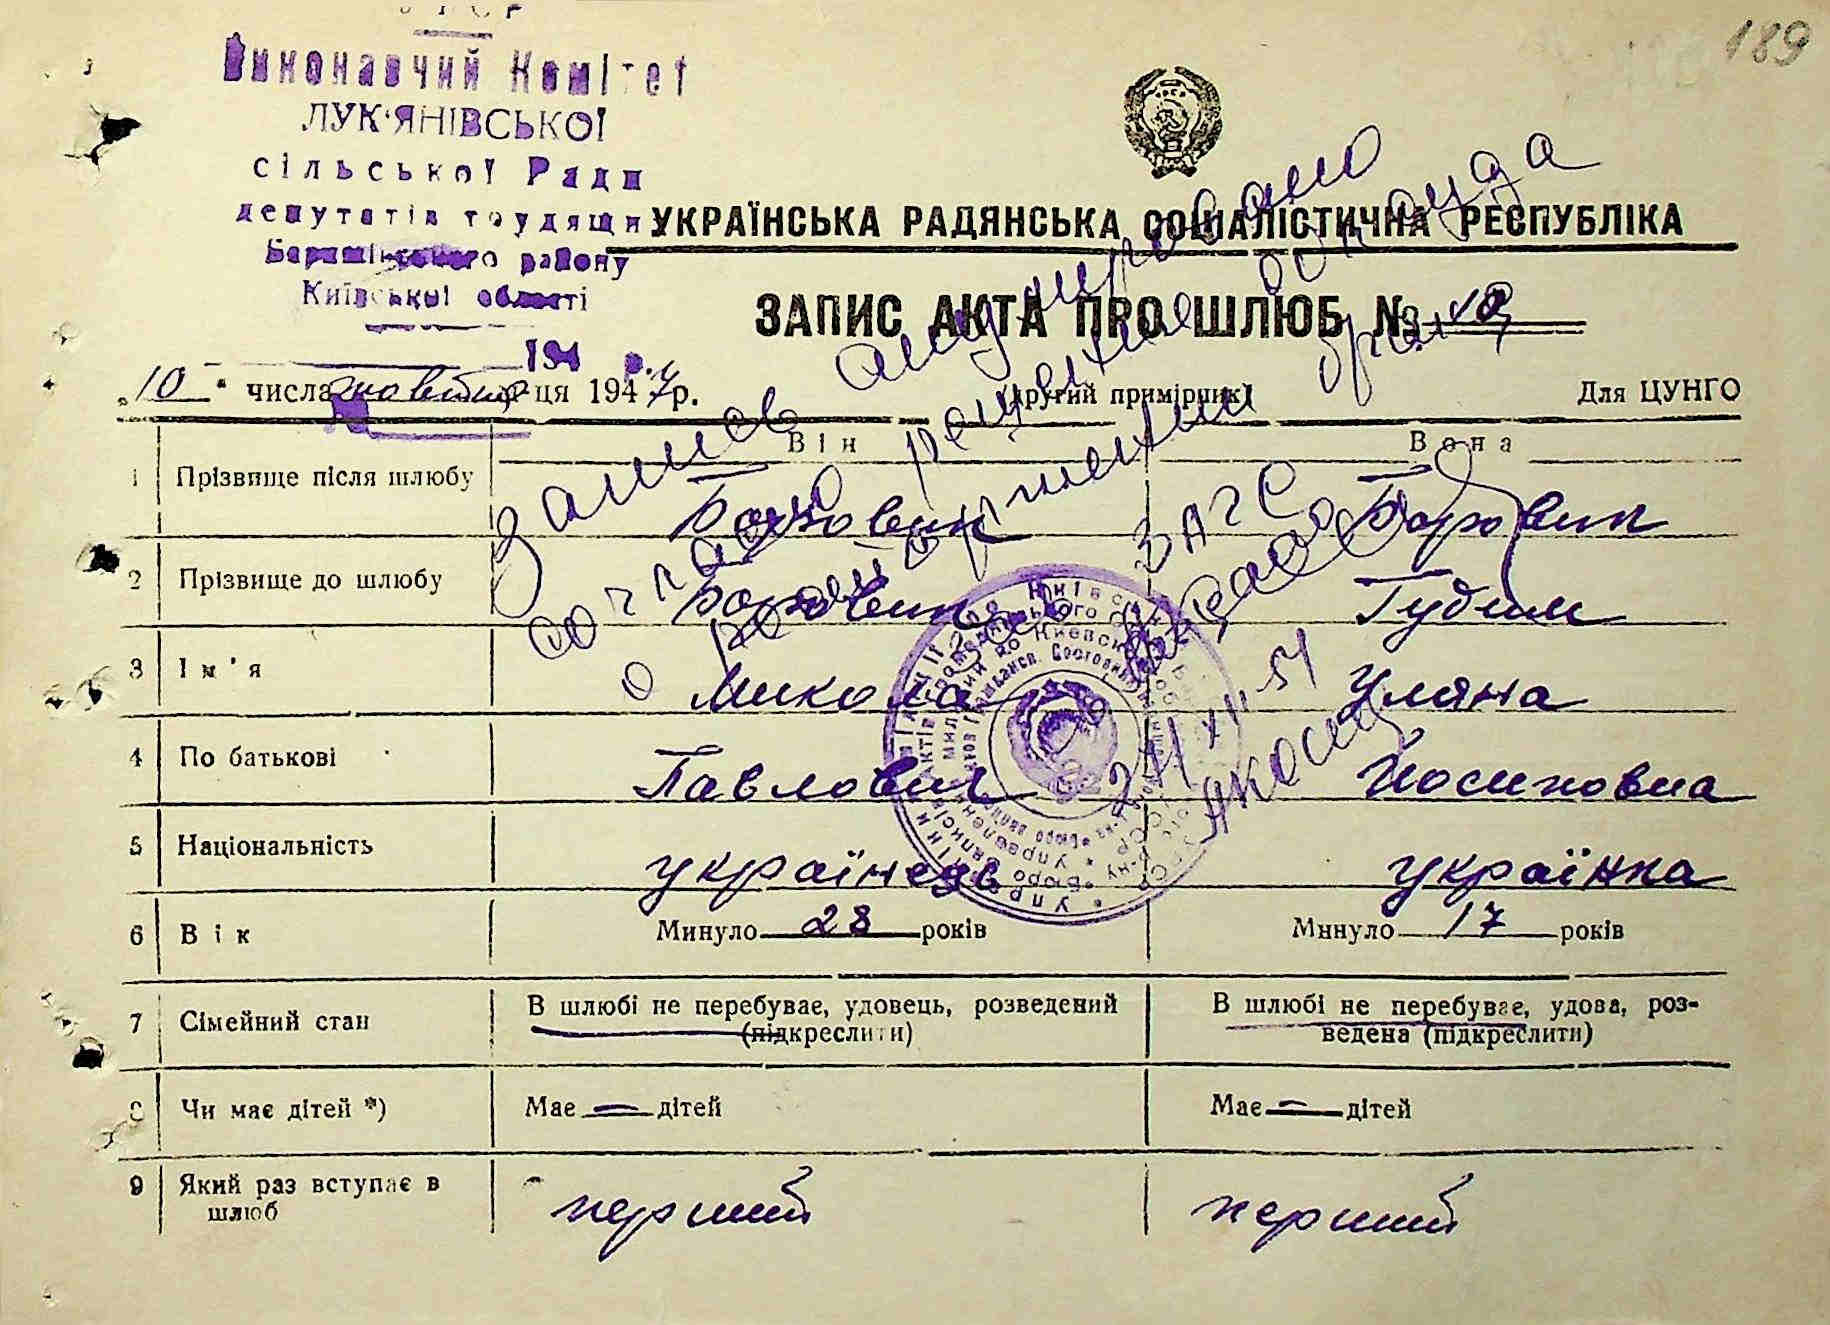 189
Виконавчий Комітет
ЛУК'ЯНІВСЬКОЇ
сільської Ради
депутатів трудящи
Баришівського району
Київської області
194 р.
УКРАЇНСЬКА РАДЯНСЬКА СОЦІАЛІСТИЧНА РЕСПУБЛІКА
ЗАПИС АКТА ПРО ШЛЮБ № 12
„10“ числа жовтня м-ця 1947 р.
(другий примірник)
Для ЦУНГО
Запись анулировано
согласно решения облсуда
о расторжении брака
ЗАГС
22/XII 51
Він Вона
1 Прізвище після шлюбу Боровик Боровик
2 Прізвище до шлюбу Боровик Гудим
3 Ім'я Микола Уляна
4 По батькові Павлович Йосиповна
5 Національність українець українка
6 Вік Минуло 28 років Минуло 17 років
7 Сімейний стан В шлюбі не перебуває, удовець, розведений (підкреслити) В шлюбі не перебуває, удова, роз-
ведена (підкреслити)
8 Чи має дітей *) Має — дітей Має — дітей
9 Який раз вступає в перший перший
шлюб